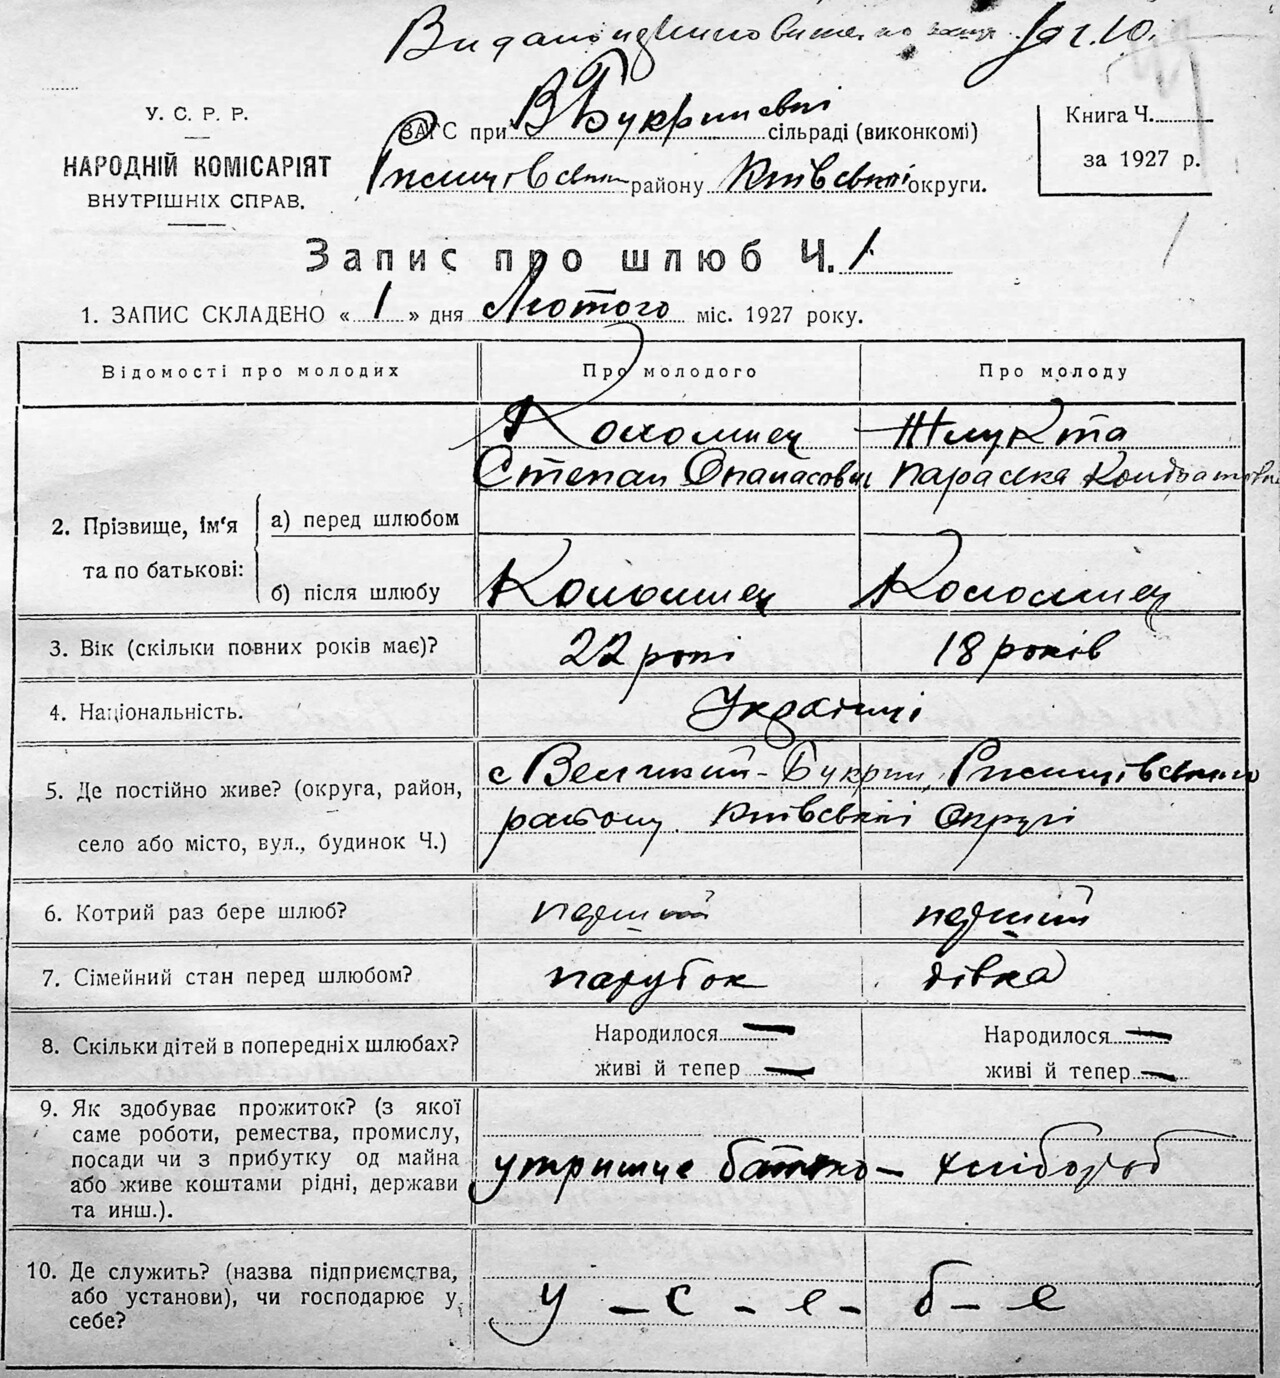 Видано
У. С. Р. Р.
НАРОДНІЙ КОМІСАРІЯТ
ВНУТРІШНІХ СПРАВ.
ЗАГС при В Букринській сільраді (виконкомі)
Ржищівськ району Київській округи.
Книга Ч.
за 1927 р.
Запис про шлюб Ч. 1
1. ЗАПИС СКЛАДЕНО « 1 » дня Лютого міс. 1927 року.
Відомості про молодих Про молодого Про молоду
Коломиец Жлукта
Степан Опанасович Параска Кондратовна
2. Прізвище, ім'я та по батькові:
а) перед шлюбом
б) після шлюбу Коломиец Коломиец
3. Вік (скільки повних років має)? 22 рокі 18 років
4. Національність. Українці
5. Де постійно живе? (округа, район, село або місто, вул., будинок Ч.)
с Великий-Букрин, Ржищівського
району Київській Округі
6. Котрий раз бере шлюб? перший перший
7. Сімейний стан перед шлюбом? парубок дівка
8. Скільки дітей в попередніх шлюбах? Народилося — Народилося —
живі й тепер — живі й тепер —
9. Як здобуває прожиток? (з якої
саме роботи, ремества, промислу,
посади чи з прибутку од майна
або живе коштами рідні, держави
та инш.).
утримує батько – хлібороб
10. Де служить? (назва підприємства,
або установи), чи господарює у
себе?
у – с – е – б – е